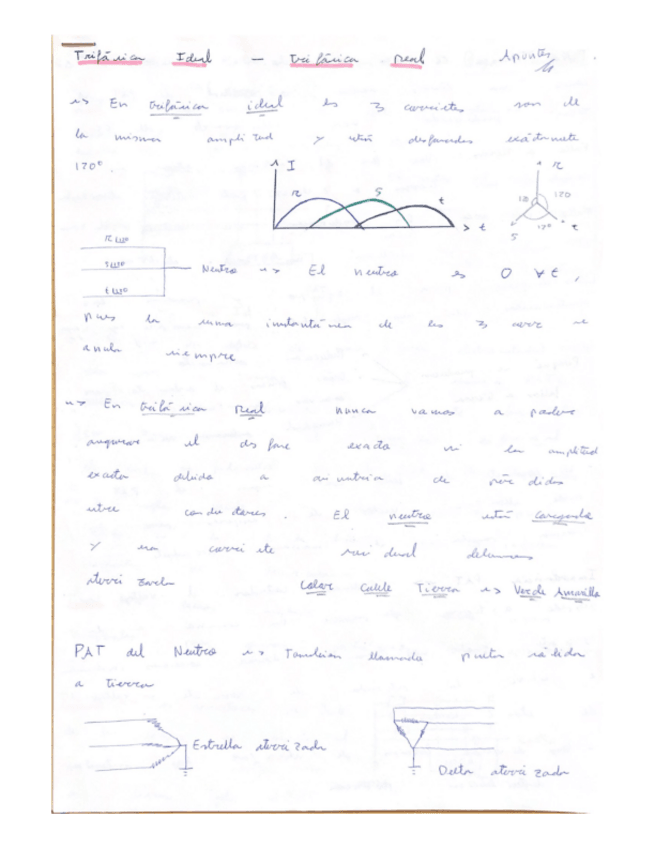 Trifásica Ideal — trifásica real Apuntes
=> En trifásica ideal las 3 corrientes son de
la misma amplitud y están desfasadas exactamente
120°.
I
R S t
t
R
120 120
S 120 t
R
S
t
Neutro => El neutro es 0 ∀ t,
pues la suma instantánea de las 3 corr se
anula siempre
=> En trifásica real nunca vamos a poder
asegurar el desfase exacto ni la amplitud
exacta debido a asimetría de pérdidas
entre conductores. El neutro está cargado
y esa corriente residual debemos
aterrizarla Color Cable Tierra => Verde Amarillo
PAT del Neutro => También llamada puesta sólida
a tierra
Estrella aterrizada
Delta aterrizada